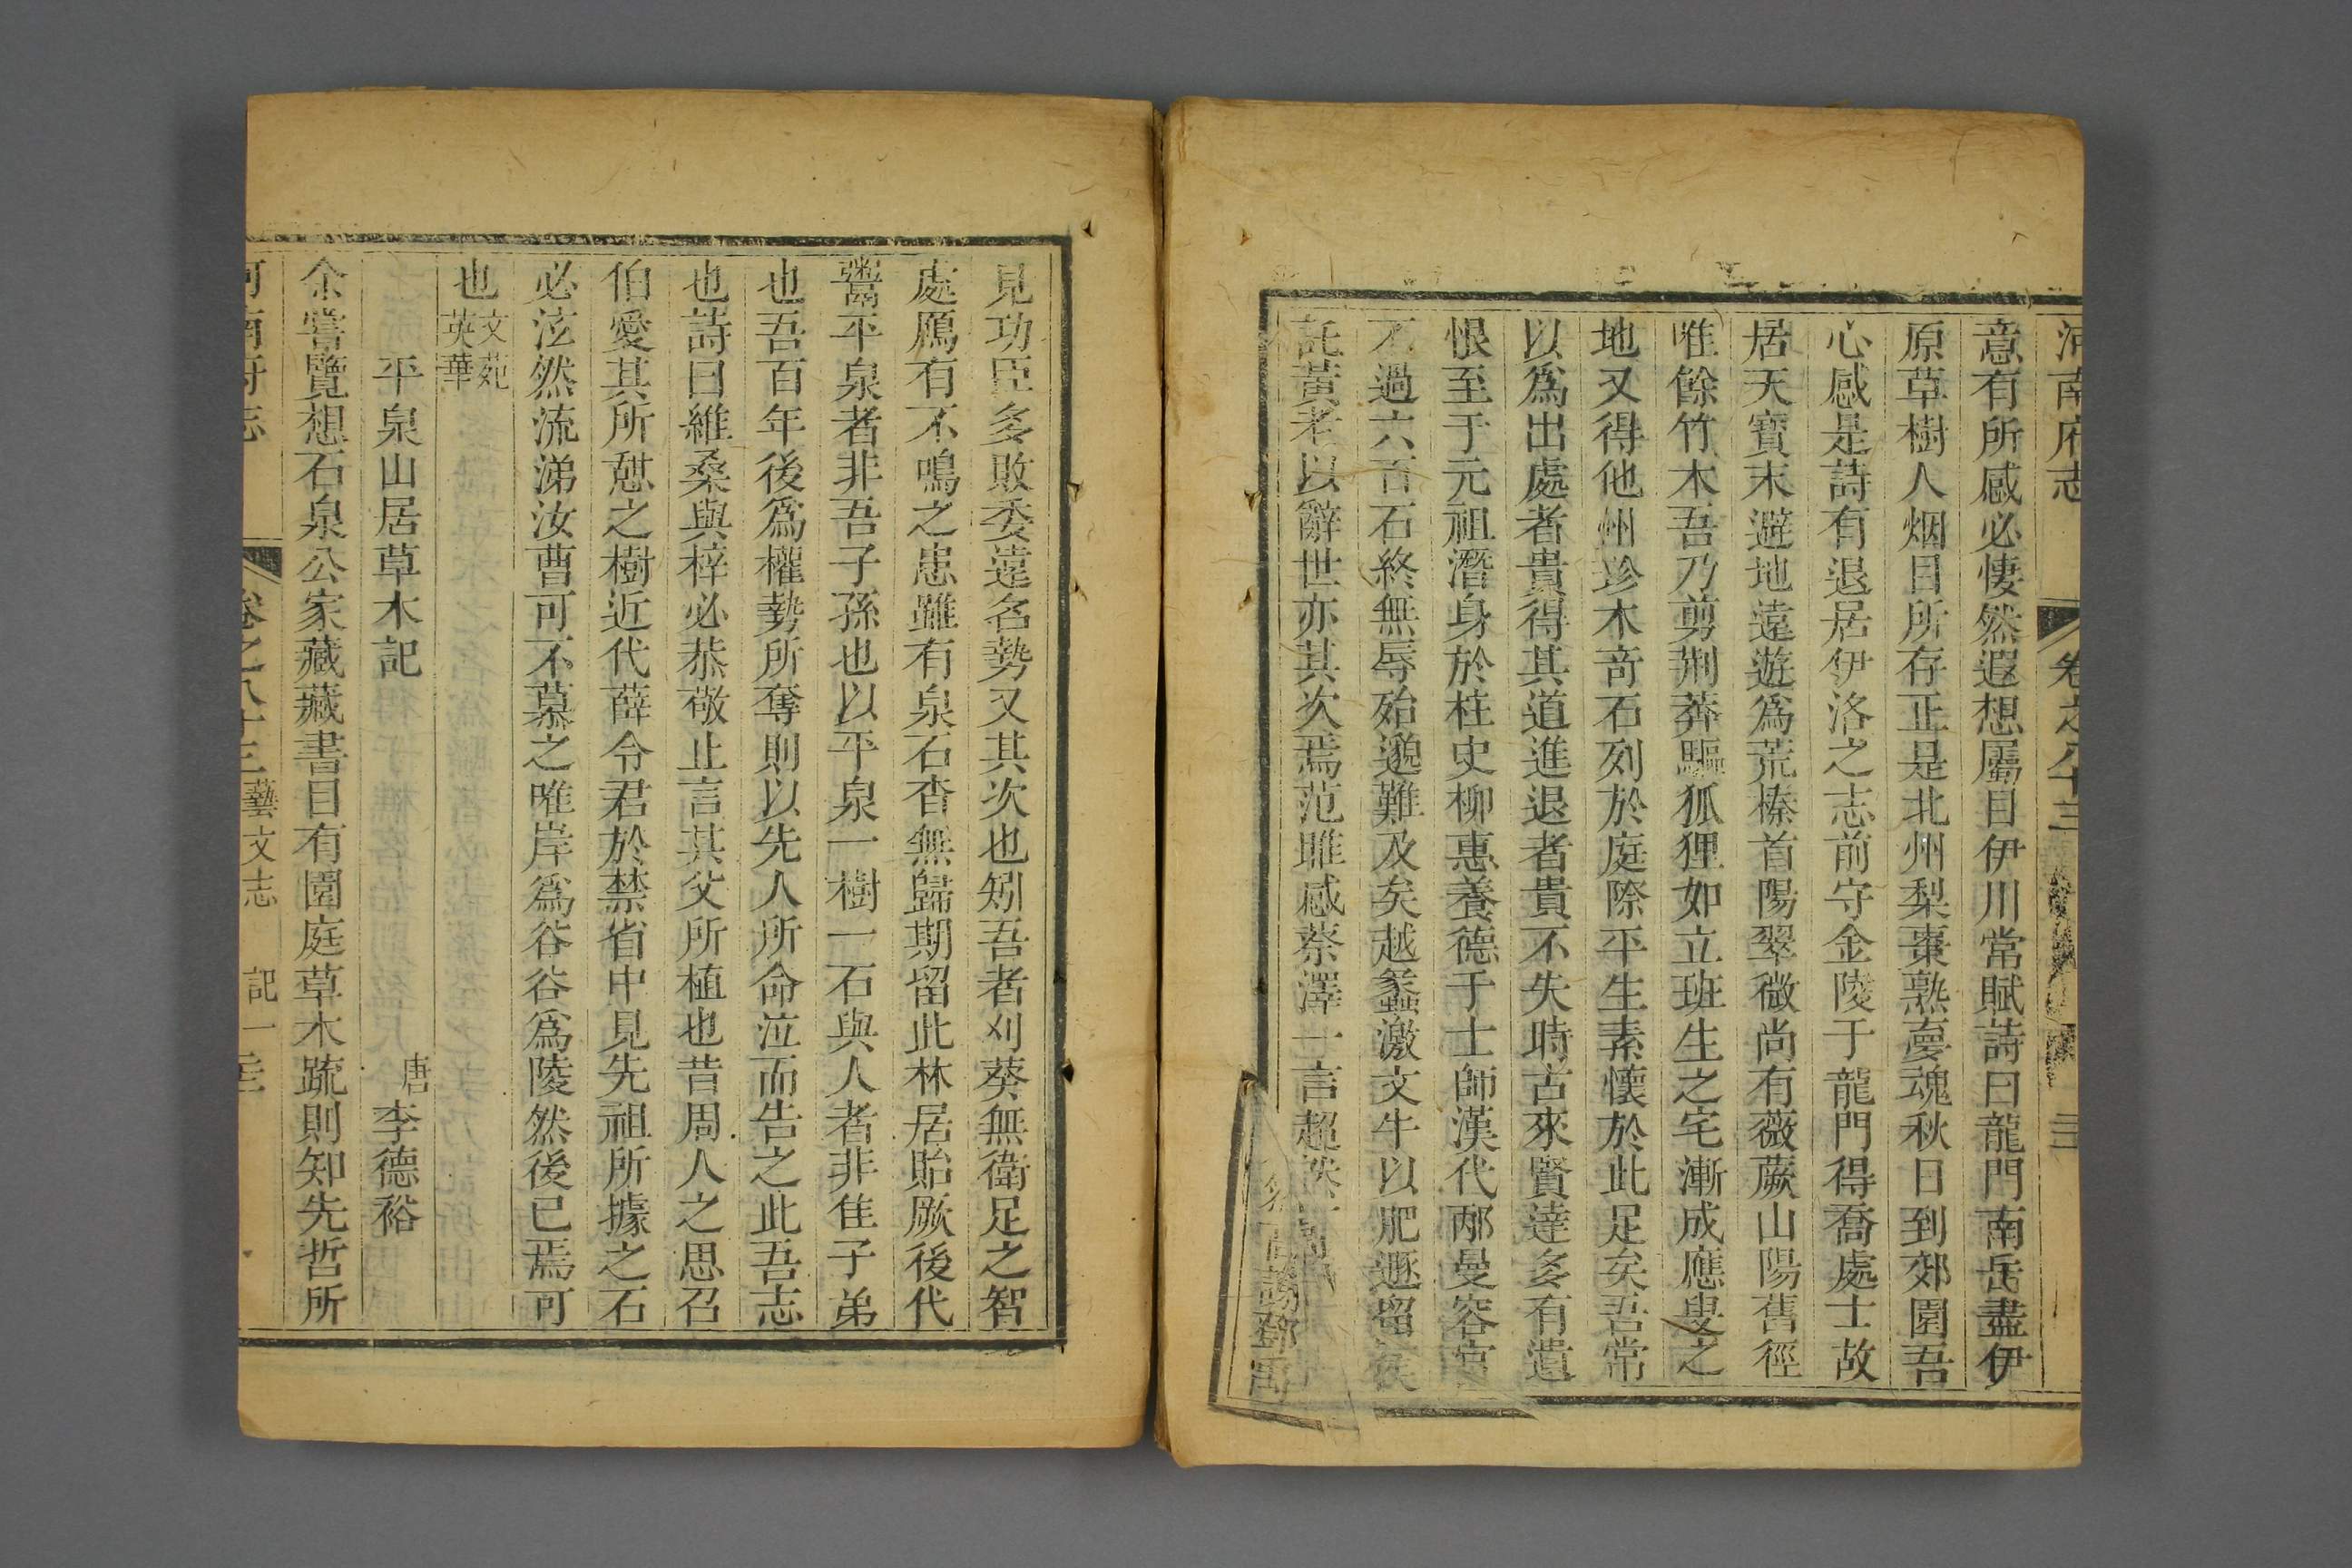 河南府志 卷之八十三
意有所感必悽然遐想屬目伊川常賦詩曰龍門南岳盡伊
原草樹人烟目所存正是北州梨棗熟夢魂秋日到郊園吾
心感是詩有退居伊洛之志前守金陵于龍門得喬處士故
居天寶末避地遠遊爲荒榛首陽翠微尚有薇蕨山陽舊徑
唯餘竹木吾乃剪荆莽驅狐狸如立班生之宅漸成應叟之
地又得他州珍木奇石列於庭際平生素懷於此足矣吾常
以爲出處者貴得其道進退者貴不失時古來賢達多有遺
恨至于元祖潛身於柱史柳惠養德于士師漢代邴曼容官
不過六百石終無辱殆邈難及矣越蠡激文牛以肥遯留侯
託黃老以辭世亦其次焉范雎感蔡澤一言超
見功臣多敗委遠名勢又其次也矧吾者刈葵無衛足之智
處鴈有不鳴之患雖有泉石杳無歸期留此林居貽厥後代
鬻平泉者非吾子孫也以平泉一樹一石與人者非隹子弟
也吾百年後爲權勢所奪則以先人所命泣而告之此吾志
也詩曰維桑與梓必恭敬止言其父所植也昔周人之思召
伯愛其所憇之樹近代薛令君於禁省中見先祖所據之石
必泫然流涕汝曹可不慕之唯岸爲谷谷爲陵然後已焉可
也 文苑英華
平泉山居草木記 唐 李德裕
余嘗覽想石泉公家藏藏書目有園庭草木疏則知先哲所
河南府志 卷之八十三 藝文志 記一